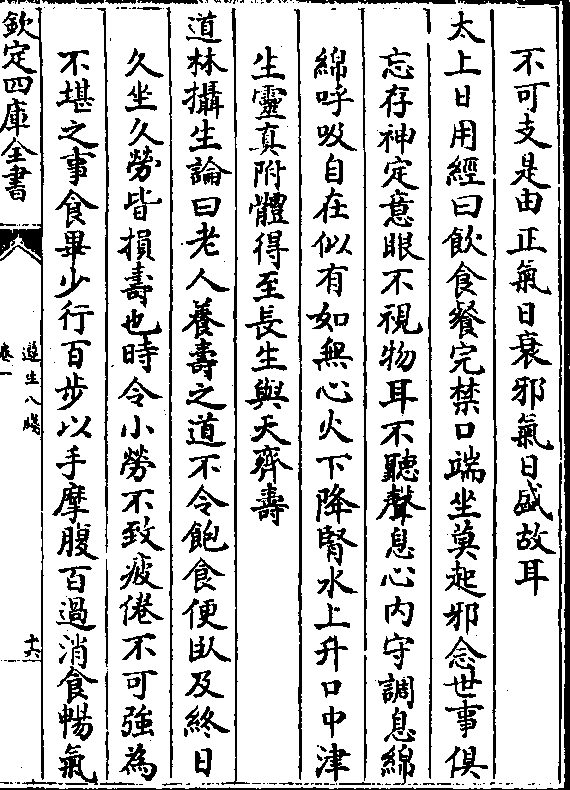 不可支是由正氣日衰邪氣日盛故耳
太上日用經曰飲食餐完禁口端坐莫起邪念世事俱
忘存神定意眼不視物耳不聽聲息心內守調息綿
綿呼吸自在似有如無心火下降腎水上升口中津
生靈真附體得至長生與天齊壽
道林攝生論曰老人養壽之道不令飽食便臥及終日
久坐久勞皆損壽也時令小勞不致疲倦不可強為
不堪之事食畢少行百步以手摩腹百過消食暢氣
欽定四庫全書
遵生八牋
卷一
十六